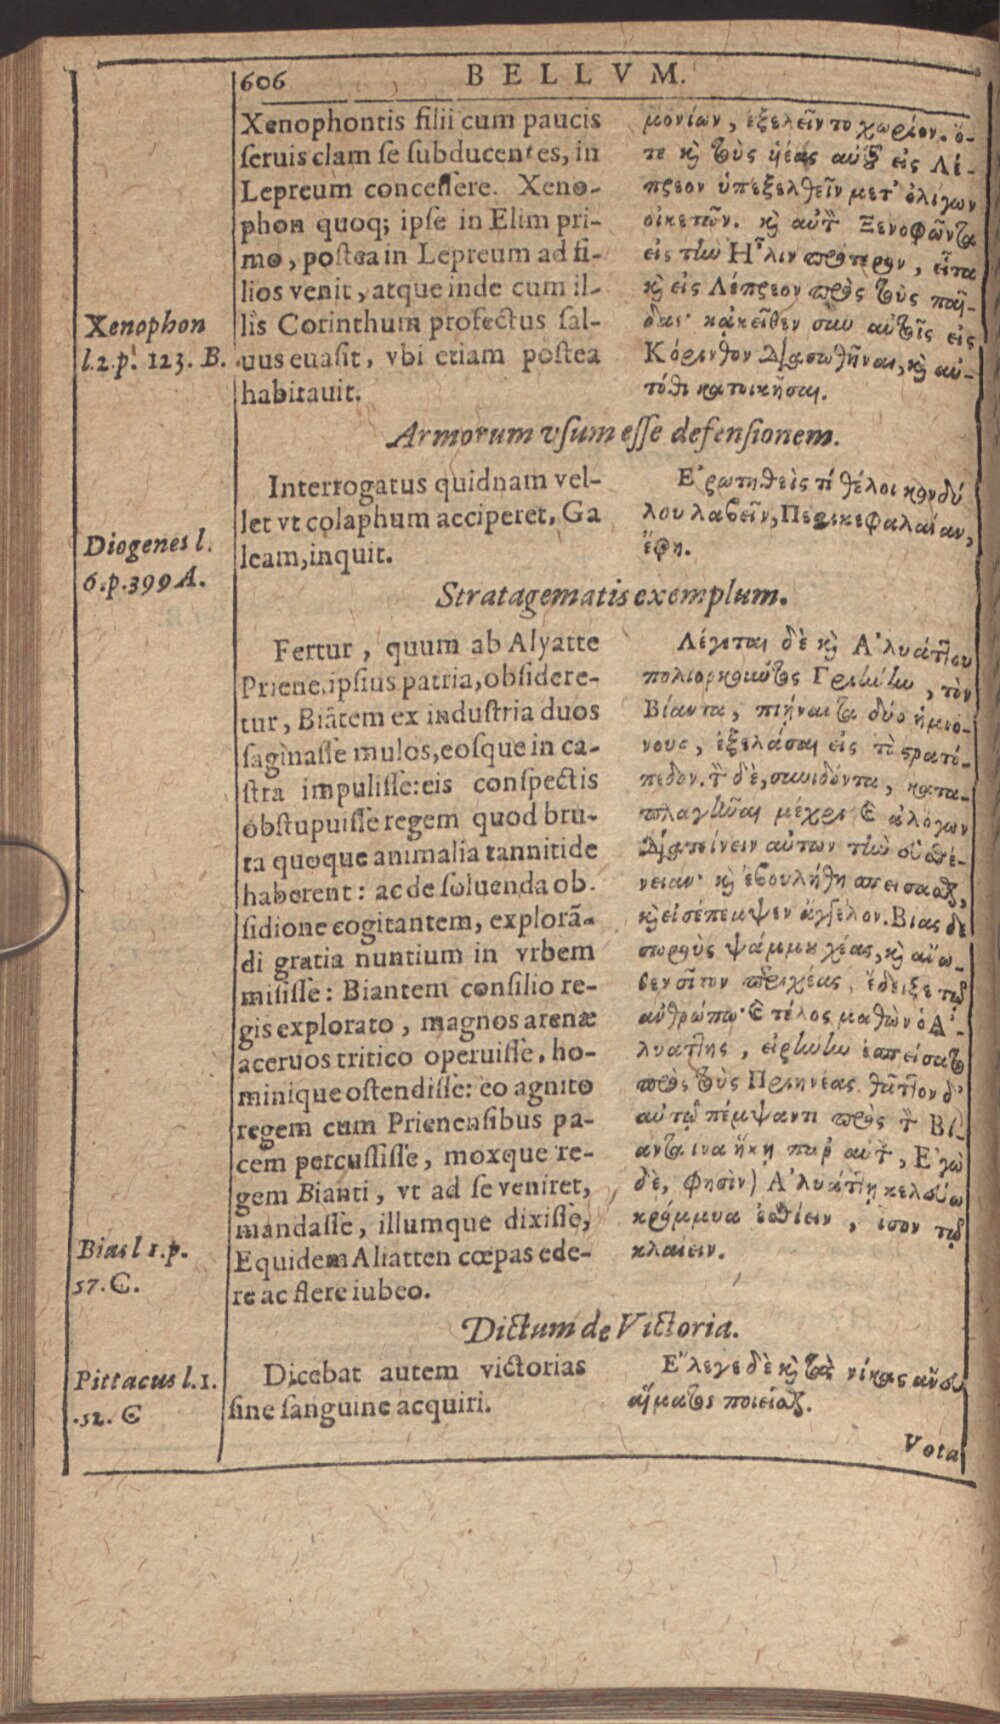 606
BELLVM.
Xenophontis filii cum paucis
seruis clam se subducentes, in
Lepreum concessere. Xeno-
phon quoq; ipse in Elim pri-
mo, postea in Lepreum ad fi-
lios venit, atque inde cum il-
lis Corinthum profectus sal-
uus euasit, vbi etiam postea
habitauit.
Xenophon
l.2.p. 123. B.
μονίων, ἐξελεῖν το χωρίον. ὅ-
τε κὶ τοὺς ὑέας αὐτȣ͂ εἰς Λέ-
πρεον ὑπεξελθεῖν μετ' ὀλίγων
οἰκετῶν. κὶ αὐτὸν Ξενοφῶντα
εἰς τὴν Ἦλιν πρότερον, εἶτα
κὶ εἰς Λέπρεον πρὸς τοὺς παῖ-
δας· κἀκεῖθεν σὺν αὐτοῖς εἰς
Κόρινθον διασωθῆναι, κὶ αὐ-
τόθι κατοικῆσαι.
Armorum vsum esse defensionem.
Interrogatus quidnam vel-
let vt colaphum acciperet, Ga
leam, inquit.
Diogenes l.
6.p.399 A.
Ἐρωτηθεὶς τί θέλοι κονδύ
λου λαβεῖν, Περικεφαλαίαν,
ἔφη.
Stratagematis exemplum.
Fertur, quum ab Alyatte
Priene ipsius patria, obsidere-
tur, Biātem ex industria duos
saginasse mulos, eosque in ca-
stra impulisse: eis conspectis
obstupuisse regem quod bru-
ta quoque animalia tannitide
haberent: ac de soluenda ob-
sidione cogitantem, explorā-
di gratia nuntium in vrbem
misisse: Biantem consilio re-
gis explorato, magnos arenæ
aceruos tritico operuisse, ho-
minique ostendisse: eo agnito
regem cum Prienensibus pa-
cem percussisse, moxque re-
gem Bianti, vt ad se veniret,
mandasse, illumque dixisse,
Equidem Aliatten cœpas ede-
re ac flere iubeo.
Bias l 1.p.
57. C.
Λέγεται δὲ κὶ Ἀλυάττου
πολιορκοῦντος Πριήνην, τὸν
Βίαντα, πιήναντα δύο ἡμιό-
νους, ἐξελάσαι εἰς τὸ στρατό-
πεδον. τὸν δὲ, συνιδόντα, κατα-
πλαγῆναι μέχρι καὶ ἀλόγων
διατείνειν αὐτῶν τὴν εὐθέ-
νειαν· κὶ ἐβουλήθη σπείσασθαι,
κὶ εἰσέπεμψεν ἄγγελον. Βίας δὲ
σωροὺς ψάμμου χέας, κὶ ἄνω-
θεν σῖτον περιχέας, ἔδειξε τῷ
ἀνθρώπῳ· καὶ τέλος μαθὼν ὁ Ἀ-
λυάττης, εἰρήνην ἐσπείσατο
πρὸς τοὺς Πριηνέας. θᾶττον δ'
αὐτῷ πέμψαντι πρὸς τὸν Βί-
αντα ἵνα ἥκῃ παρ' αὐτὸν, Ἐγὼ
δὲ, φησὶν) Ἀλυάττῃ κελεύω
κρόμμυα ἐσθίειν, ἴσον τῷ
κλαίειν.
Dictum de Victoria.
Dicebat autem victorias
sine sanguine acquiri.
Pittacus l.1.
.52. C
Ἔλεγε δὲ κὶ τὰς νίκας ἄνευ
αἵματος ποιεῖσθαι.
Vota